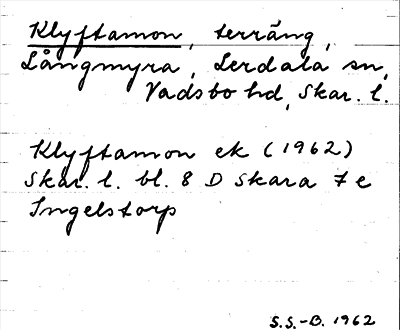 Klyftamon, terräng,
Långmyra, Lerdala sn,
Vadsbo hd, Skar. l.
Klyftamon ek (1962)
Skar. l. bl. 8 D Skara 7 e
Ingelstorp
S.S.-B. 1962